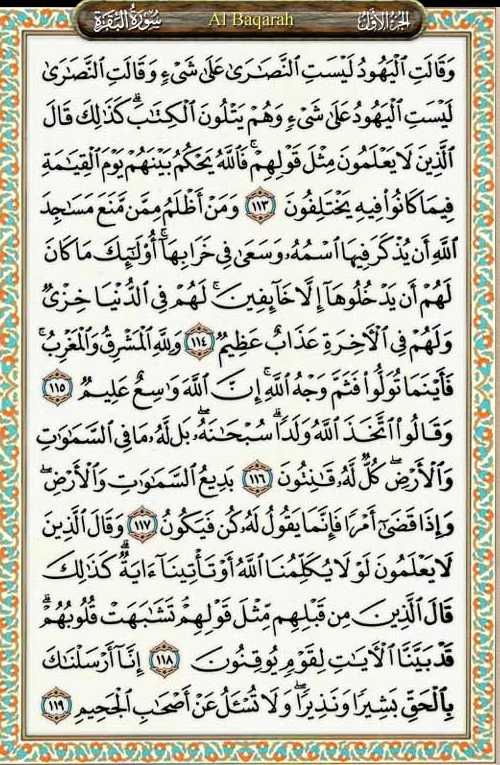 سُورَةُ البَقَرَةِ Al Baqarah الجُزءُ الأوَّلُ
وَقَالَتِ ٱلْيَهُودُ لَيْسَتِ ٱلنَّصَـٰرَىٰ عَلَىٰ شَىْءٍ وَقَالَتِ ٱلنَّصَـٰرَىٰ
لَيْسَتِ ٱلْيَهُودُ عَلَىٰ شَىْءٍ وَهُمْ يَتْلُونَ ٱلْكِتَـٰبَ ۗ كَذَٰلِكَ قَالَ
ٱلَّذِينَ لَا يَعْلَمُونَ مِثْلَ قَوْلِهِمْ ۚ فَٱللَّهُ يَحْكُمُ بَيْنَهُمْ يَوْمَ ٱلْقِيَـٰمَةِ
فِيمَا كَانُوا۟ فِيهِ يَخْتَلِفُونَ ١١٣ وَمَنْ أَظْلَمُ مِمَّن مَّنَعَ مَسَـٰجِدَ
ٱللَّهِ أَن يُذْكَرَ فِيهَا ٱسْمُهُۥ وَسَعَىٰ فِى خَرَابِهَآ ۚ أُو۟لَـٰٓئِكَ مَا كَانَ
لَهُمْ أَن يَدْخُلُوهَآ إِلَّا خَآئِفِينَ ۚ لَهُمْ فِى ٱلدُّنْيَا خِزْىٌ
وَلَهُمْ فِى ٱلْـَٔاخِرَةِ عَذَابٌ عَظِيمٌ ١١٤ وَلِلَّهِ ٱلْمَشْرِقُ وَٱلْمَغْرِبُ ۚ
فَأَيْنَمَا تُوَلُّوا۟ فَثَمَّ وَجْهُ ٱللَّهِ ۚ إِنَّ ٱللَّهَ وَٰسِعٌ عَلِيمٌ ١١٥
وَقَالُوا۟ ٱتَّخَذَ ٱللَّهُ وَلَدًا ۗ سُبْحَـٰنَهُۥ ۖ بَل لَّهُۥ مَا فِى ٱلسَّمَـٰوَٰتِ
وَٱلْأَرْضِ ۖ كُلٌّ لَّهُۥ قَـٰنِتُونَ ١١٦ بَدِيعُ ٱلسَّمَـٰوَٰتِ وَٱلْأَرْضِ ۖ
وَإِذَا قَضَىٰٓ أَمْرًا فَإِنَّمَا يَقُولُ لَهُۥ كُن فَيَكُونُ ١١٧ وَقَالَ ٱلَّذِينَ
لَا يَعْلَمُونَ لَوْلَا يُكَلِّمُنَا ٱللَّهُ أَوْ تَأْتِينَآ ءَايَةٌ ۗ كَذَٰلِكَ
قَالَ ٱلَّذِينَ مِن قَبْلِهِم مِّثْلَ قَوْلِهِمْ ۘ تَشَـٰبَهَتْ قُلُوبُهُمْ ۗ
قَدْ بَيَّنَّا ٱلْـَٔايَـٰتِ لِقَوْمٍ يُوقِنُونَ ١١٨ إِنَّآ أَرْسَلْنَـٰكَ
بِٱلْحَقِّ بَشِيرًا وَنَذِيرًا ۖ وَلَا تُسْـَٔلُ عَنْ أَصْحَـٰبِ ٱلْجَحِيمِ ١١٩